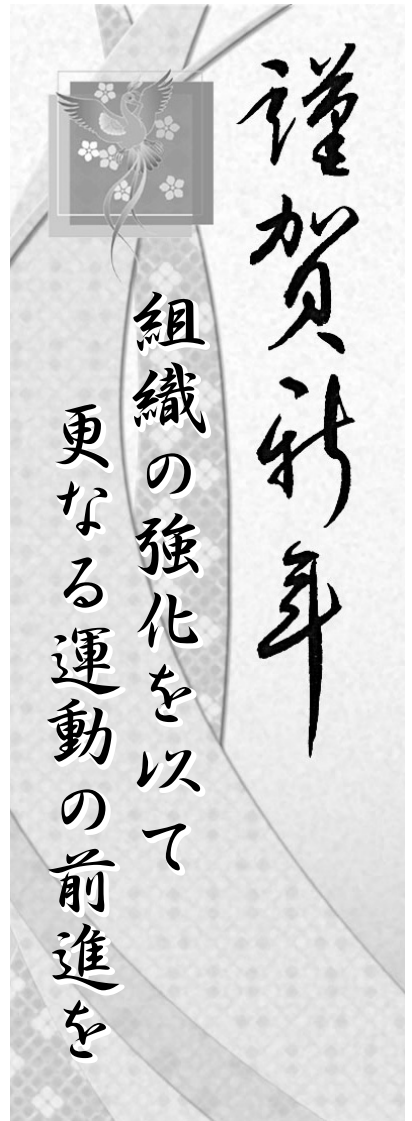 謹賀新年
組織の強化を以て
更なる運動の前進を